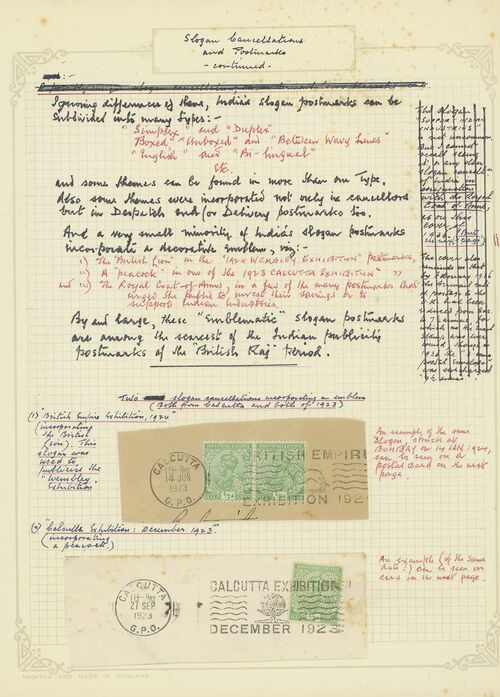 Slogan Cancellations
and Postmarks
- continued -
Ignoring differences of these, India's slogan postmarks can be
subdivided into many types:-
"Simplex" and "Duplex"
"Boxed", "Unboxed" and "Between Wavy Lines"
"English" and "Bi-lingual"
etc.
and some themes can be found in more than one Type.
Also some themes were incorporated not only in cancellations
but in Despatch and/or Delivery postmarks too.
And a very small minority of India's slogan postmarks
incorporate a decorative emblem, viz:-
i) The British Lion in the "1924 WEMBLEY EXHIBITION" postmarks,
ii) A "peacock" in one of the 1923 CALCUTTA EXHIBITION" "
and iii) The Royal Coat-of-Arms, in a few of the many postmarks that
urged the public to invest their savings or to
support Indian industries.
By and large, these "Emblematic" slogan postmarks
are among the scarcest of the Indian publicity
postmarks of the British Raj period.
The slogan
SUPPORT INDIAN
INDUSTRIES is
not rare
But I cannot
recall seeing
it, or any other
slogan
in India
incorporating
with the Royal
Coat of Arms,
as on this
cover of
1936
The cover also
reminds us that
by February 1936
Two slogan cancellations incorporating an emblem
(Both from Calcutta and both of 1923)
(1) "British Empire Exhibition, 1924"
(incorporating
the British
Lion). This
slogan was
used to
publicise the
"Wembley
Exhibition
CALCUTTA
14 JUN
1923
G.P.O.
BRITISH EMPIRE
EXHIBITION 192
An example of the same
slogan, struck at
BOMBAY on 14 JAN 1924,
can be seen on a
postal card on the next
page
(2) "Calcutta Exhibition: December 1923"
(incorporating
a peacock)
CALCUTTA
27 SEP
1923
G.P.O.
CALCUTTA EXHIBITION
DECEMBER 1923
An example (of the same
date!) can be seen on
card on the next page.
PRINTED AND MADE IN ENGLAND.